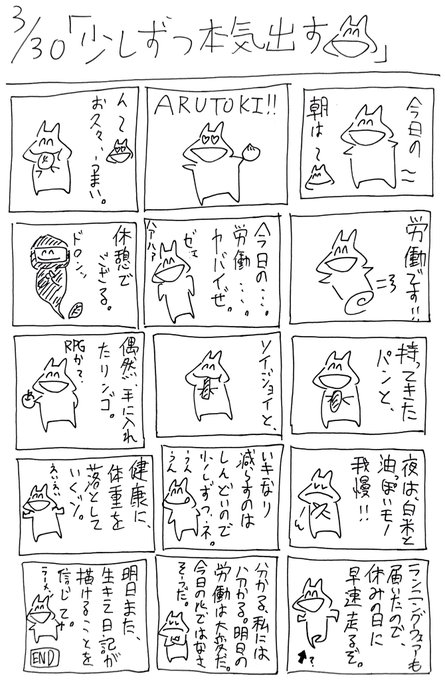 3/30「少しずつ本気出す」
今日の
朝は〜
ARUTOKI!!
んで
お久々、うまい。
労働です!!
今日の...
労働...
ヤバイぜ。
ゼェ
ハァハァ
休憩で
ござる。
ドロンッ
持ってきた
パンと、
ソイジョイと、
偶然、手に入れ
たリンゴ。
RPGか?
夜は、白米と
油っぽいモノ
我慢!!
いキなり
減らすのは
しんどいので
少しずつ、ネ。
うんうん
健康に、
体重を
落として
いくゾ。
えいえい
ランニングウェアも
届いたので、
休みの日に
早速走るぞ。
?
分かる、私には
分かる。明日の
労働は大変だ。
今日の比ではなさ
そうだ。
明日また、
生きて日記が
描けることを
信じて。
END